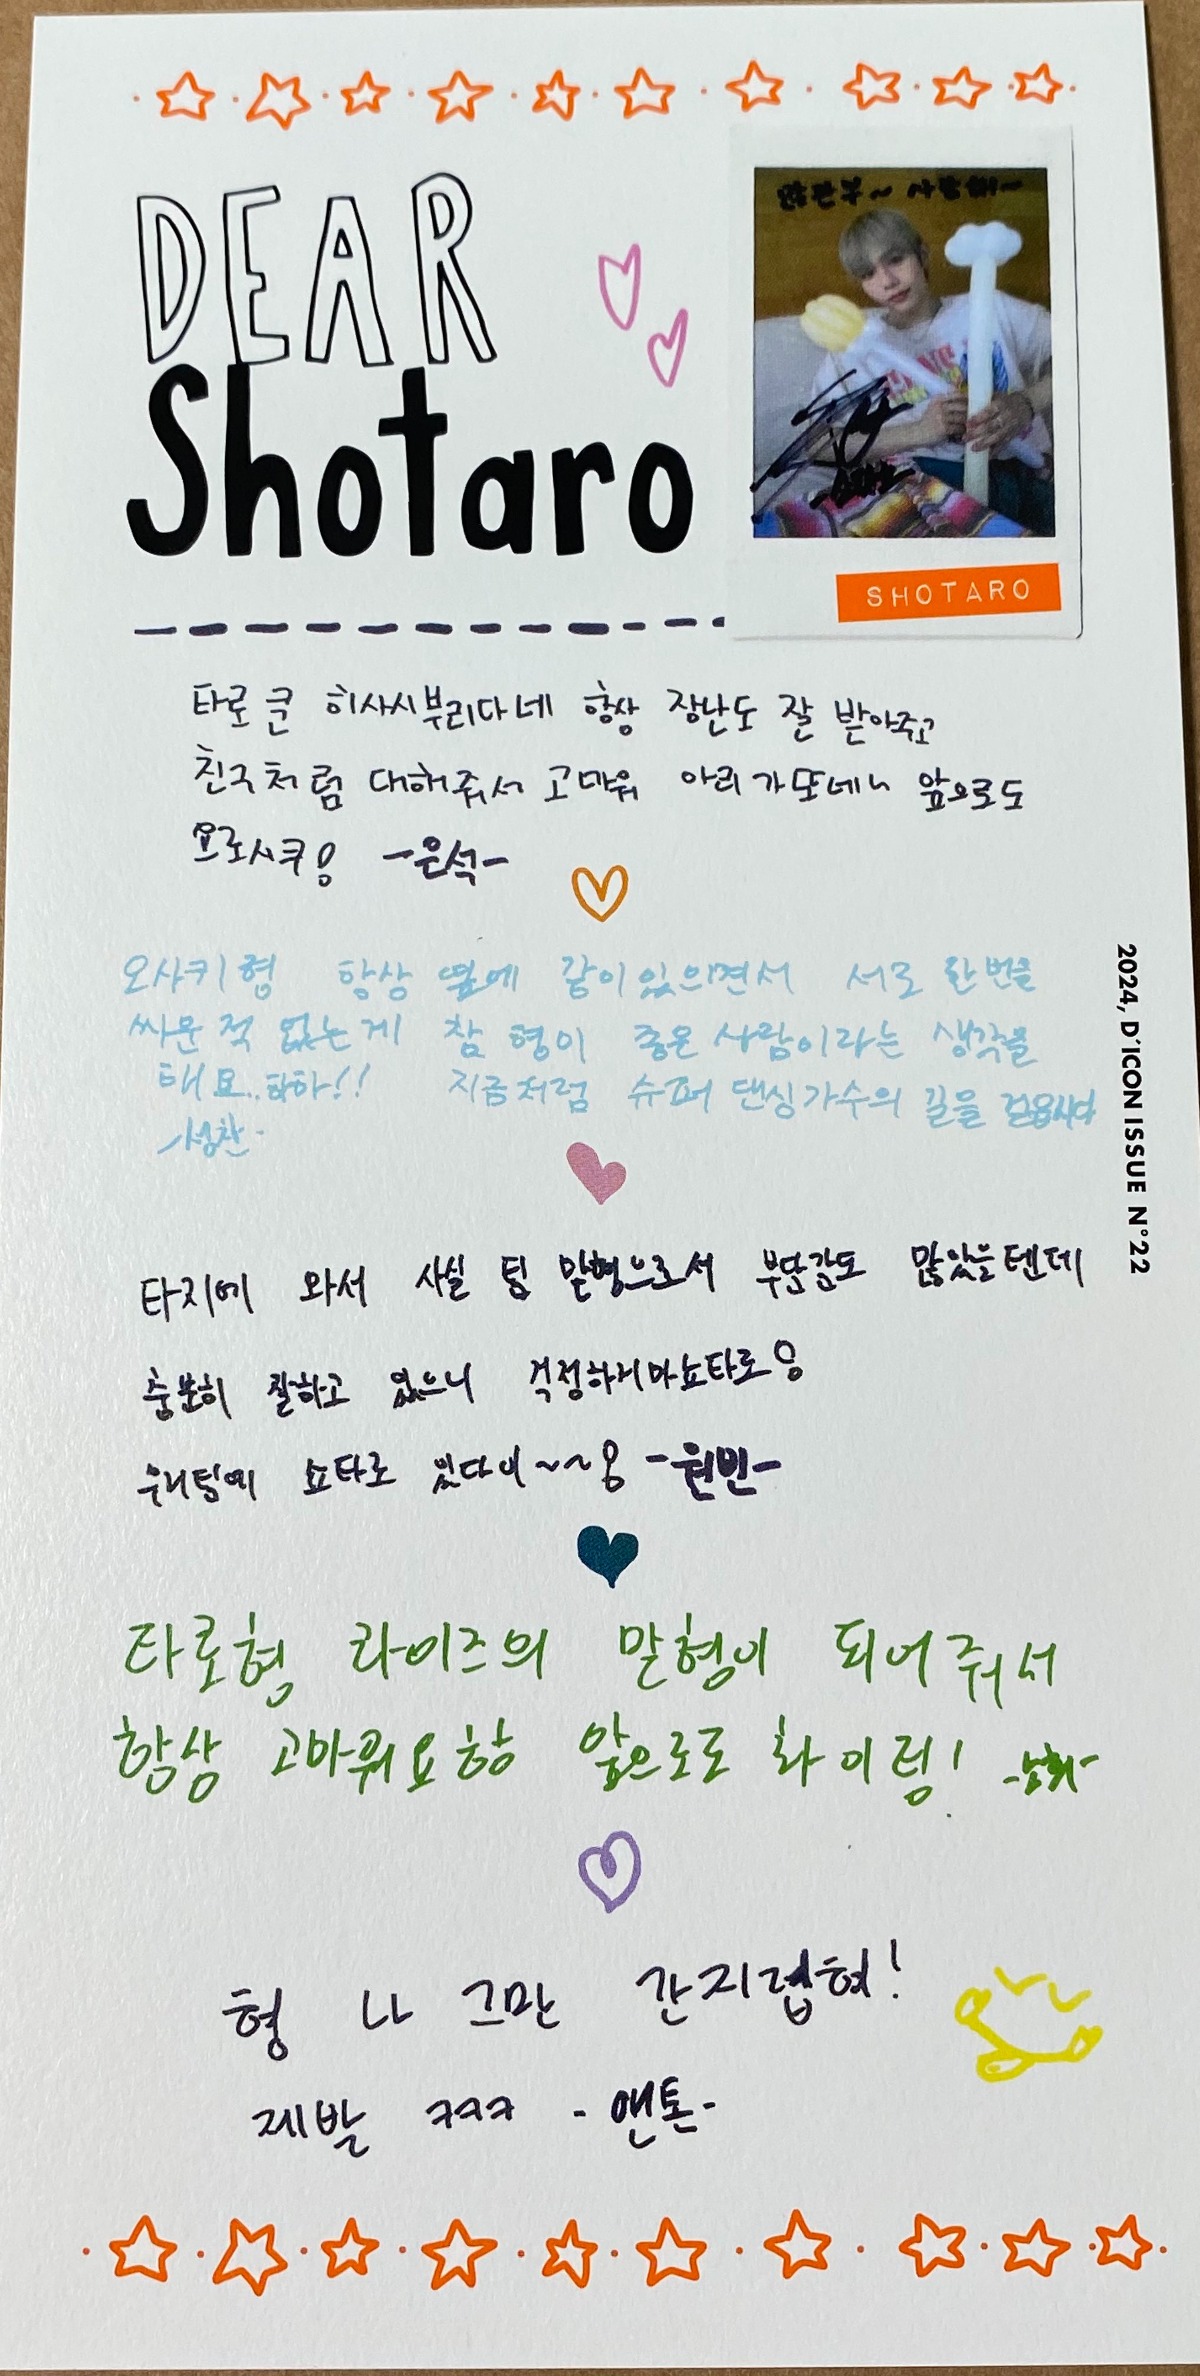 DEAR
Shotaro
사랑해~
SHOTARO
타로 쿤 히사시부리다네 항상 장난도 잘 받아주고
친구처럼 대해줘서 고마워 아리가또네~ 앞으로도
요로시쿠! -은석-
오사키형 항상 옆에 같이있으면서 서로 한번을
싸운 적 없는게 참 형이 좋은 사람이라는 생각을
해요..하하!! 지금처럼 슈퍼 댄싱가수의 길을 걸읍시다
성찬-
2024, D'ICON ISSUE N°22
타지에 와서 사실 팀 맏형으로서 부담감도 많았을텐데
충분히 잘하고 있으니 걱정하지마쇼타로!
우리팀에 쇼타로 있다아~~! -원빈-
타로형 라이즈의 맏형이 되어줘서
항상 고마워요항 앞으로도 화이팅!
형 나 그만 간지럽혀!
제발 ㅋㅋㅋ -앤톤-